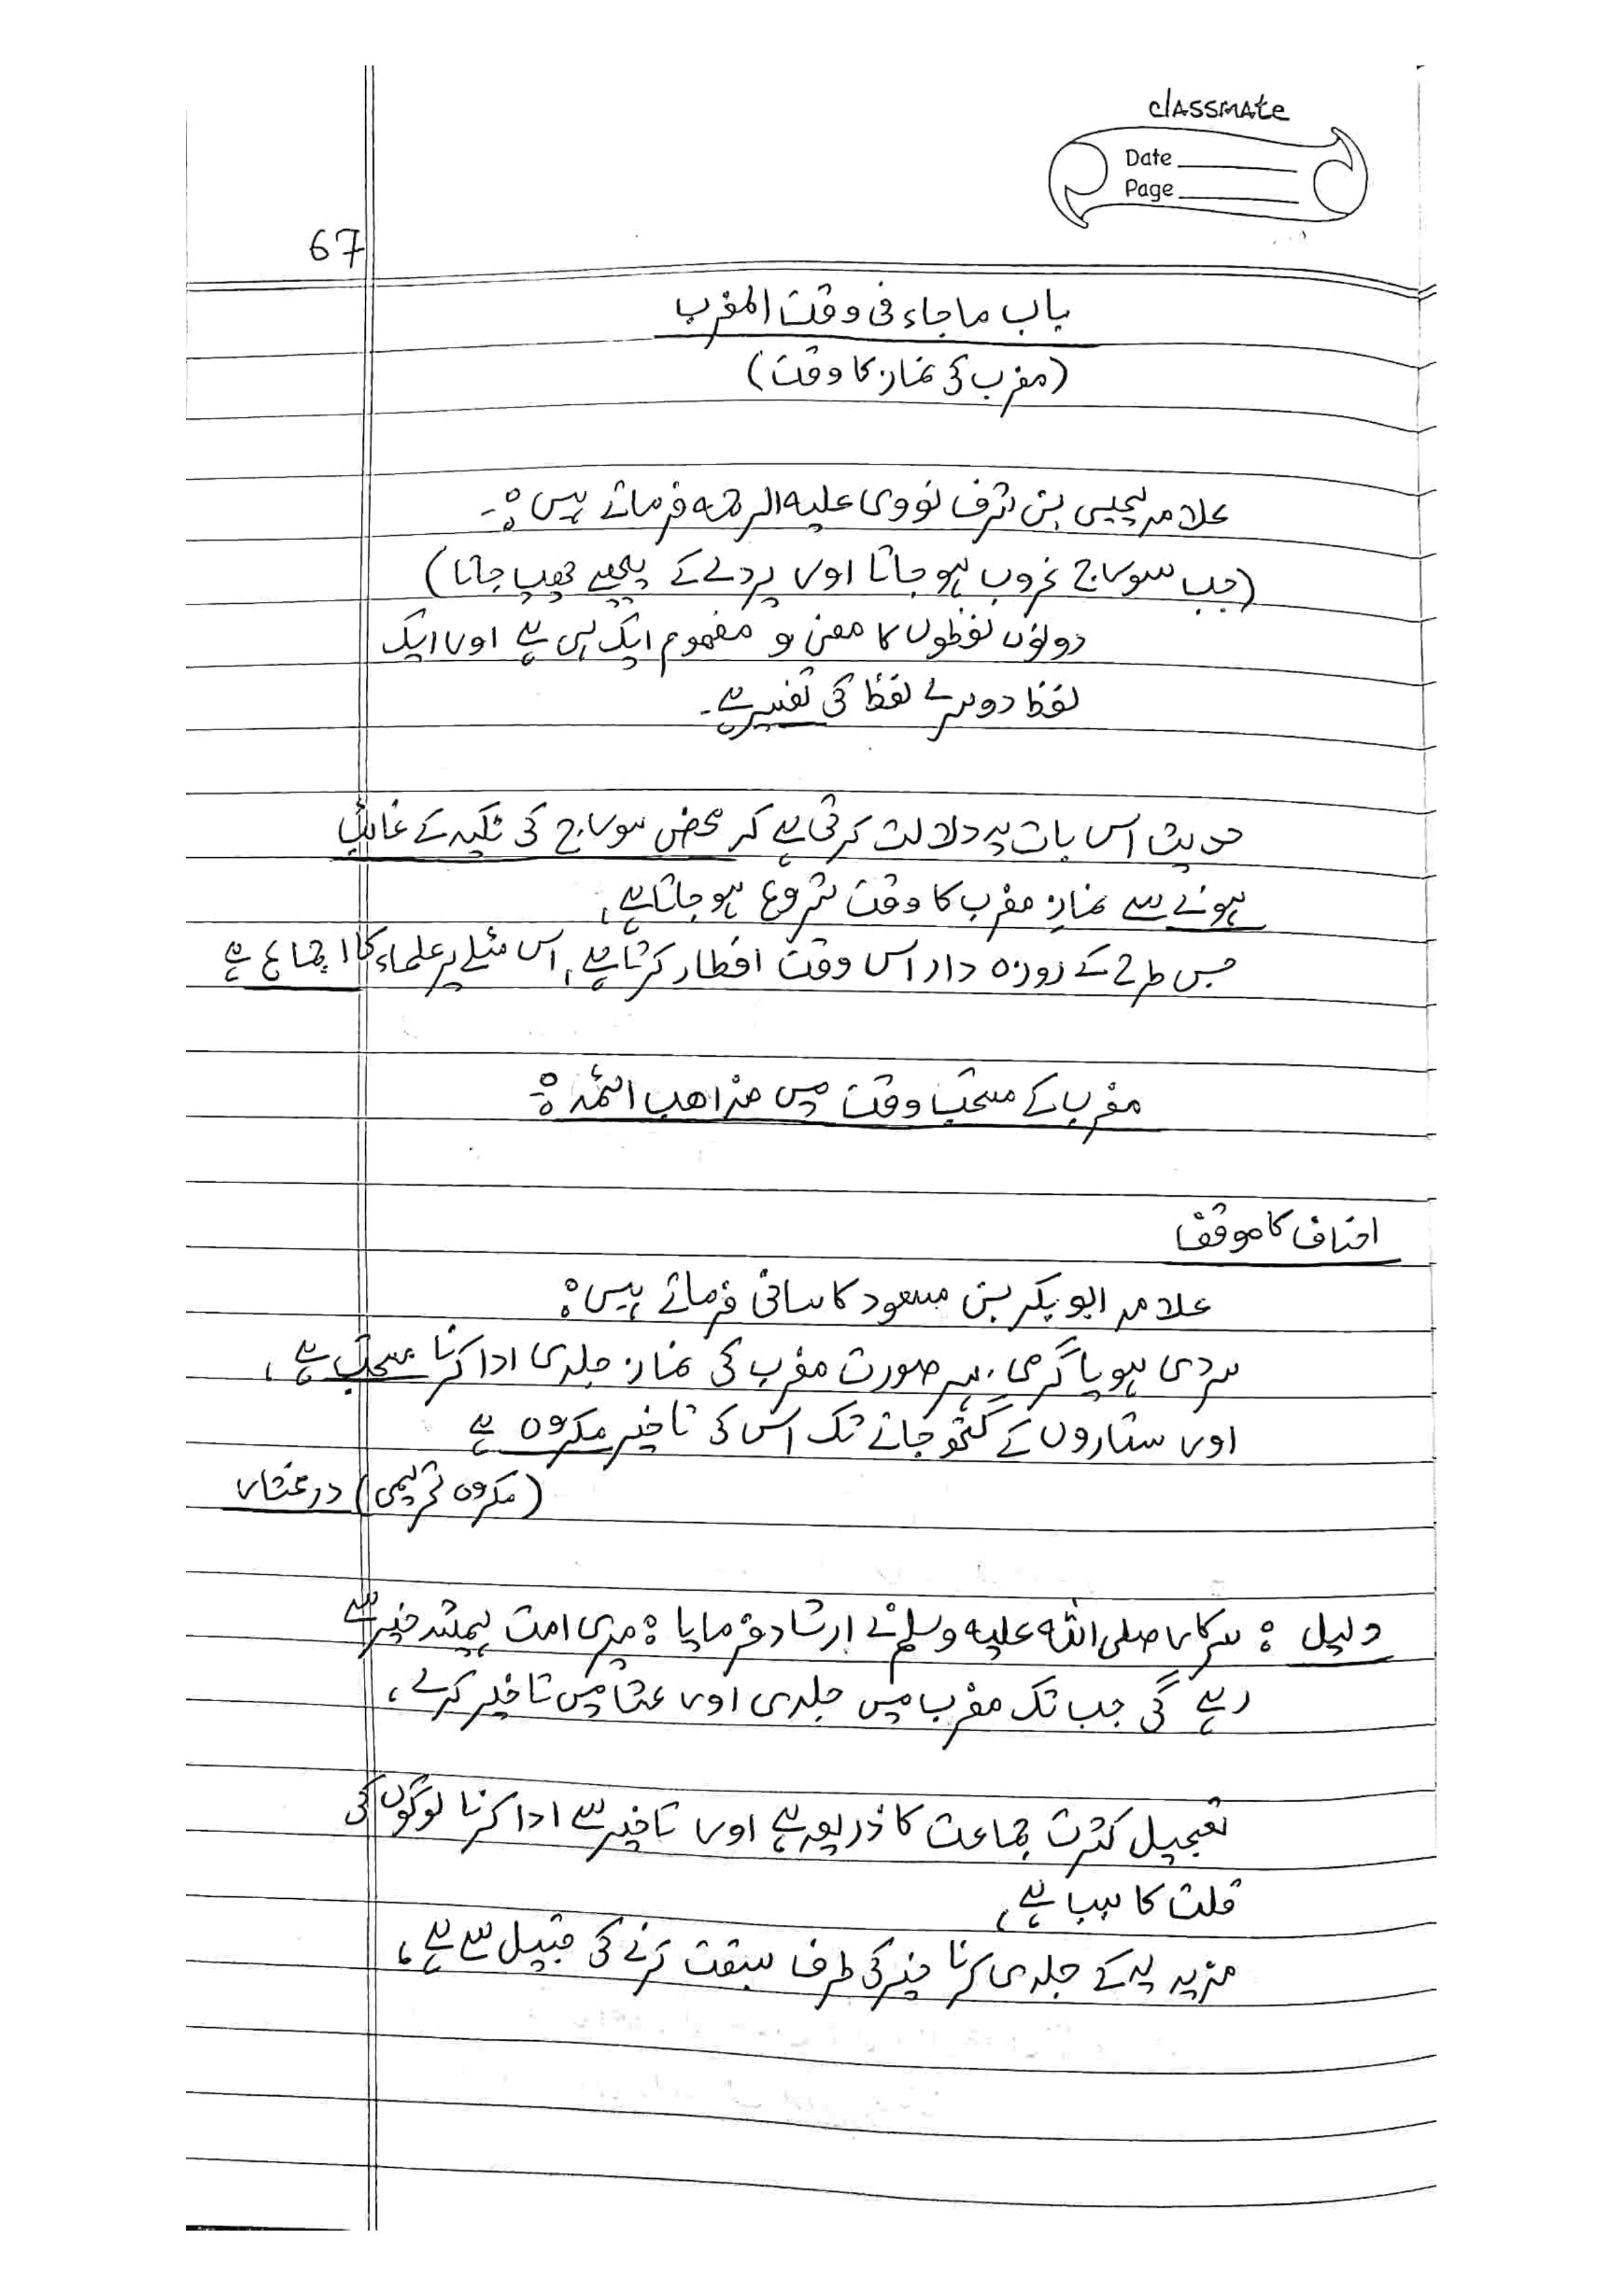 classmate
Date
Page
67
باب ما جاء فی وقت المغرب
(مغرب کی نماز کا وقت)
علامہ یحییٰ بن شرف نووی علیہ الرحمہ فرماتے ہیں :-
(جب سورج غروب ہو جاتا اور پردے کے پیچھے چھپ جاتا)
دونوں لفظوں کا معنی و مفہوم ایک ہی ہے اور ایک
لفظ دوسرے لفظ کی تفسیر ہے -
حدیث اس بات پہ دلالت کرتی ہے کہ محض سورج کی ٹکیہ کے غائب
ہونے سے نمازِ مغرب کا وقت شروع ہو جاتا ہے،
جس طرح کے روزہ دار اس وقت افطار کرتا ہے، اس مئلے پر علماء کا اجماع ہے
مغرب کے مستحب وقت میں مذاھب ائمہ :-
احناف کا موقف
علامہ ابو بکر بن مسعود کاسانی فرماتے ہیں :
سردی ہو یا گرمی، ہر صورت مغرب کی نماز جلدی ادا کرنا مستحب ہے،
اور ستاروں کے گتھ جانے تک اس کی تاخیر مکروہ ہے
(مکروہ تحریمی) در مختار
دلیل : سرکار صلی اللہ علیہ وسلم نے ارشاد فرمایا : میری امت ہمیشہ خیر سے
رہے گی جب تک مغرب میں جلدی اور عشا میں تاخیر کرے،
تعجیل کثرت جماعت کا ذریعہ ہے اور تاخیر سے ادا کرنا لوگوں کی
قلت کا سبب ہے،
مزید یہ کے جلدی کرنا خیر کی طرف سبقت کرنے کی قبیل سے ہے،